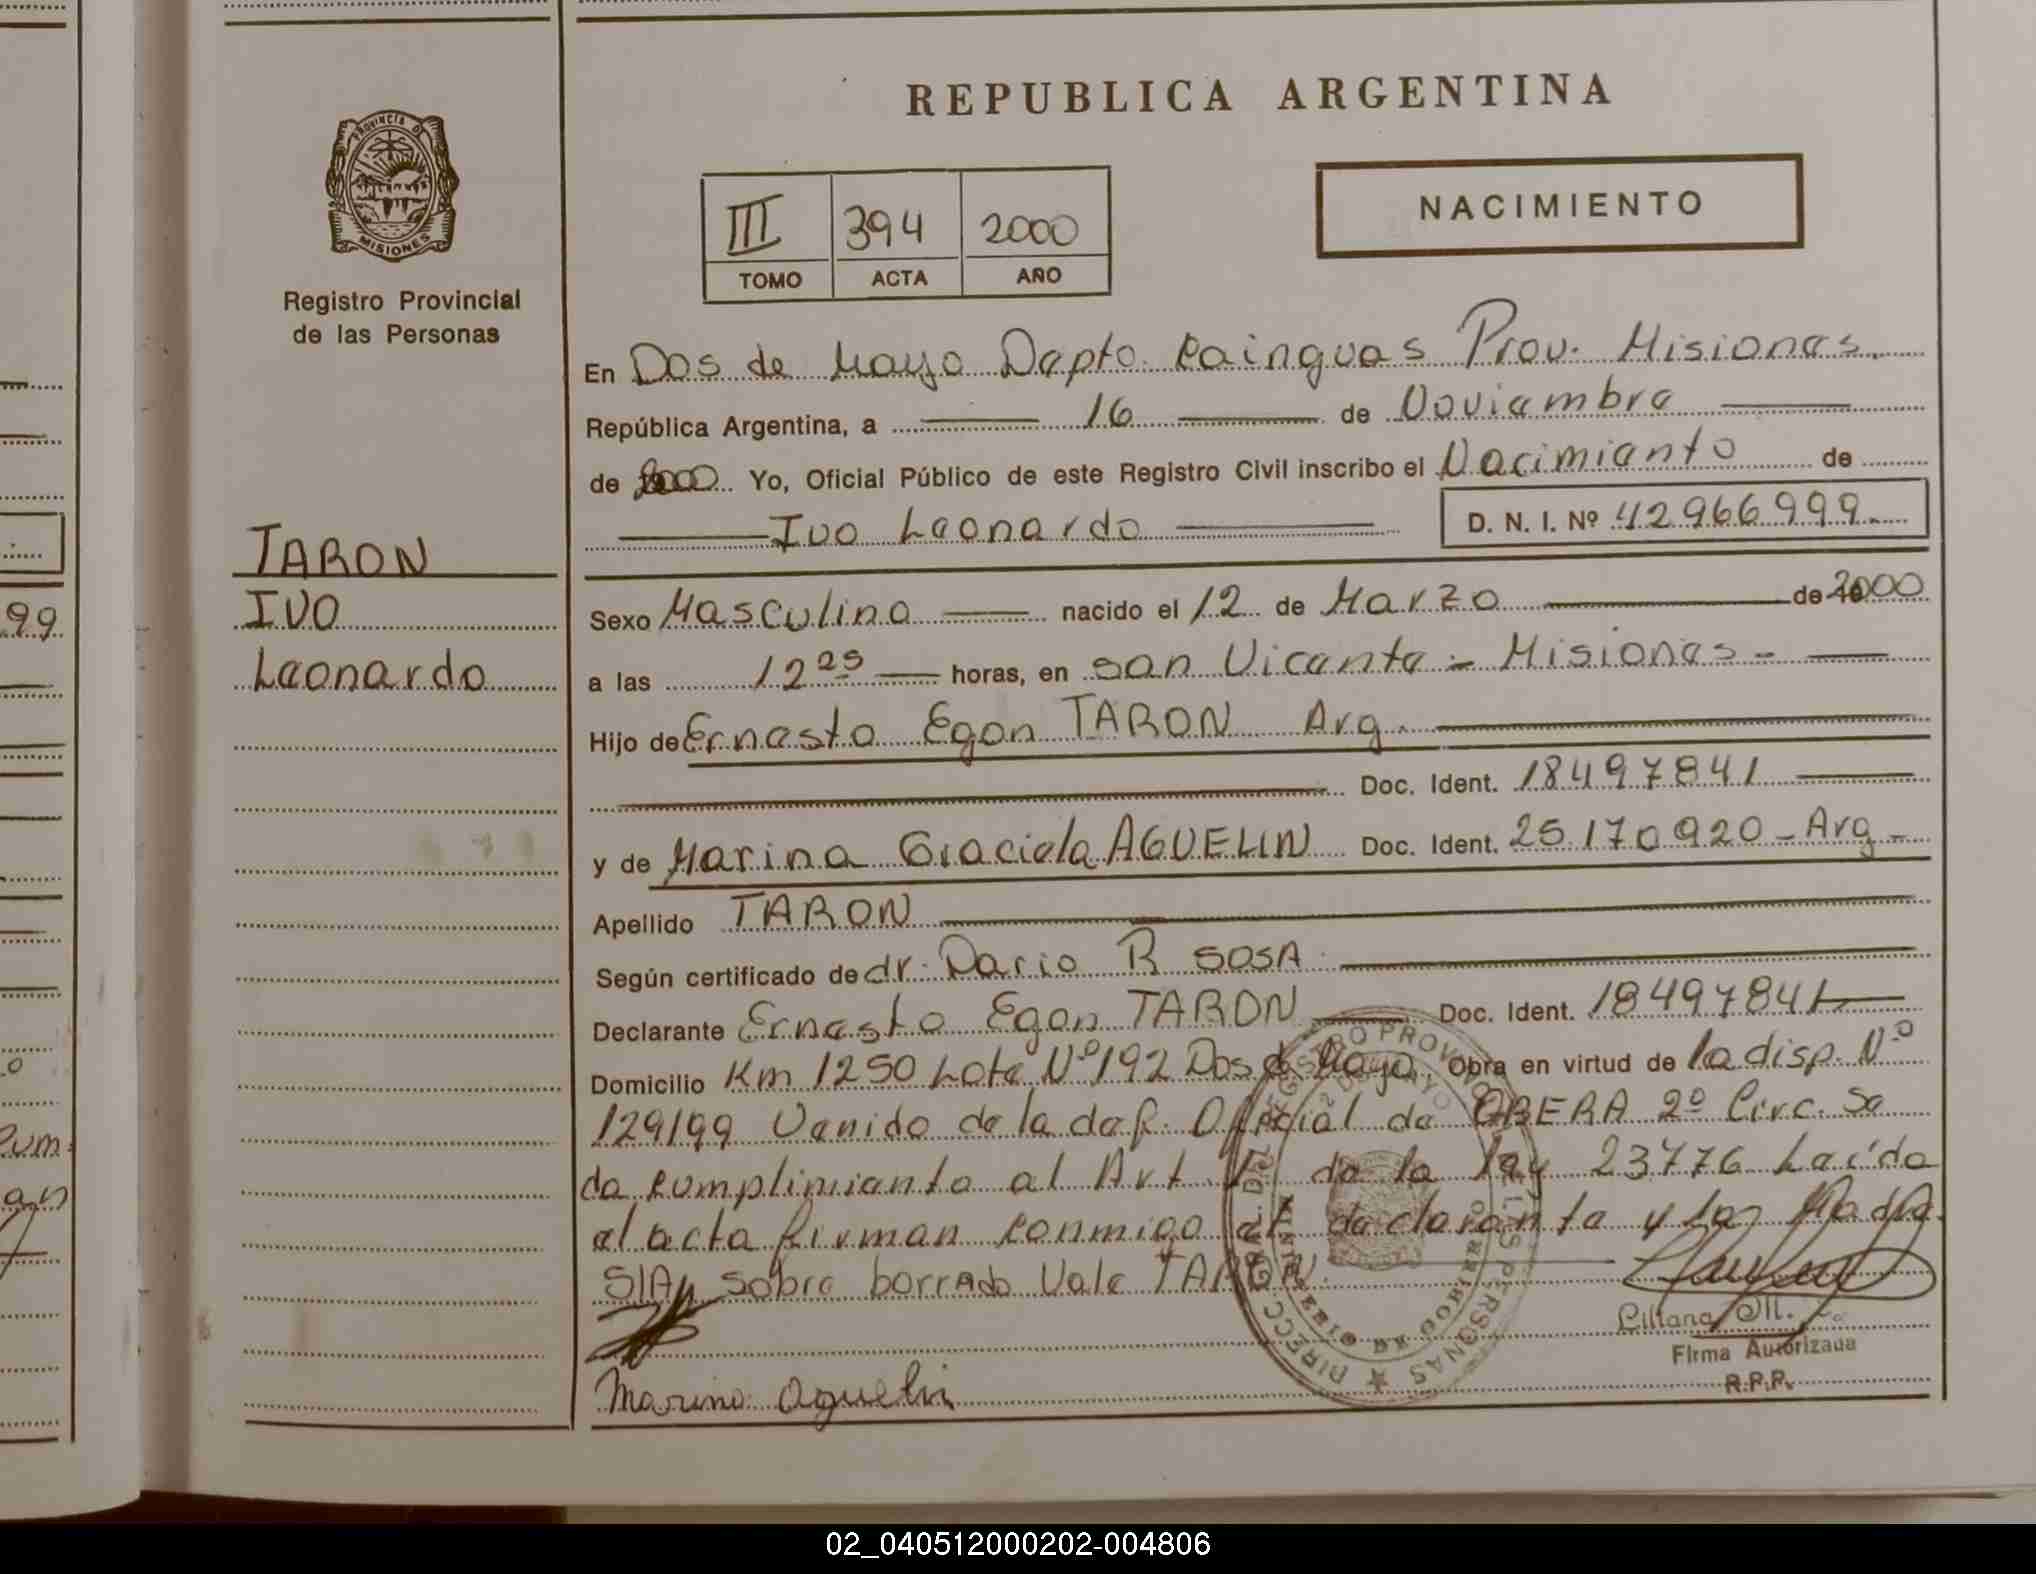 REPUBLICA ARGENTINA
PROVINCIA D
MISIONES
Registro Provincial
de las Personas
III 394 2000
TOMO ACTA AÑO
NACIMIENTO
En Dos de Mayo Depto. Cainguas Prov. Misiones.
República Argentina, a 16 de Noviembre
de 2000 Yo, Oficial Público de este Registro Civil inscribo el Nacimiento de
Ivo Leonardo D. N. I. Nº 42966999.
TARON
IVO
Leonardo
Sexo Masculino nacido el 12 de Marzo de 2000
a las 12 25 horas, en san Vicente - Misiones -
Hijo de Ernesto Egon TARON Arg.
Doc. Ident. 18497841
y de Marina Graciela AGUELIN Doc. Ident. 25.170920 - Arg -
Apellido TARON
Según certificado de dr. Dario R SOSA
Declarante Ernesto Egon TARON Doc. Ident. 18497841
Domicilio Km 1250 Lote Nº 192 Dos de Mayo Obra en virtud de la disp. Nº
129/99 Venido de la def. Oficial de OBERA 2º Circ. Se
da cumplimiento al Art de la ley 23776 Leída
el acta firman conmigo el declarante y la Madre.
S/A sobre borrado Vale TARON.
Liliana M.
Firma Autorizada
R.P.P.
Marina Aguelin
99
02_040512000202-004806